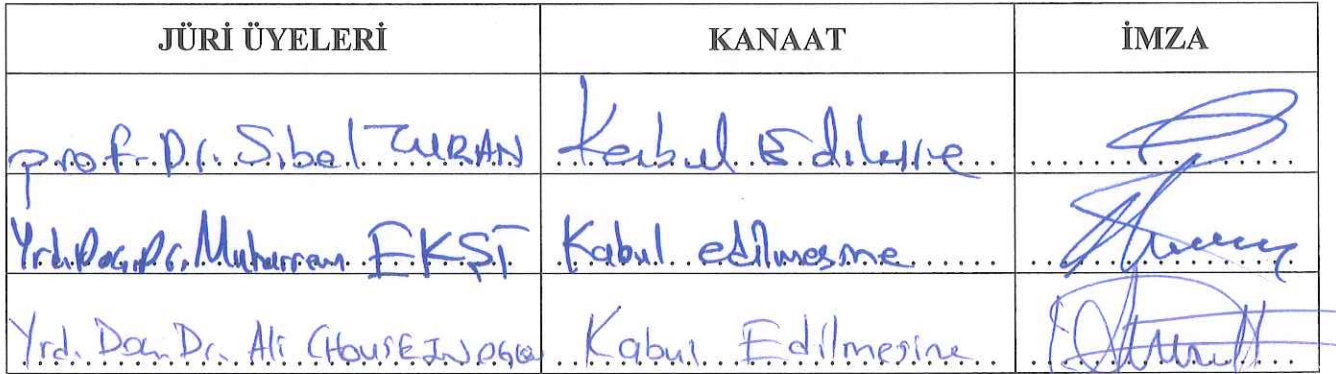 JÜRİ ÜYELERİ KANAAT İMZA
Prof. Dr. Sibel TURAN Kabul Edilmesine
Yrd. Doç. Dr. Muharrem EKŞİ Kabul edilmesine
Yrd. Doç. Dr. Ali CHOUSEINOGLOU Kabul Edilmesine